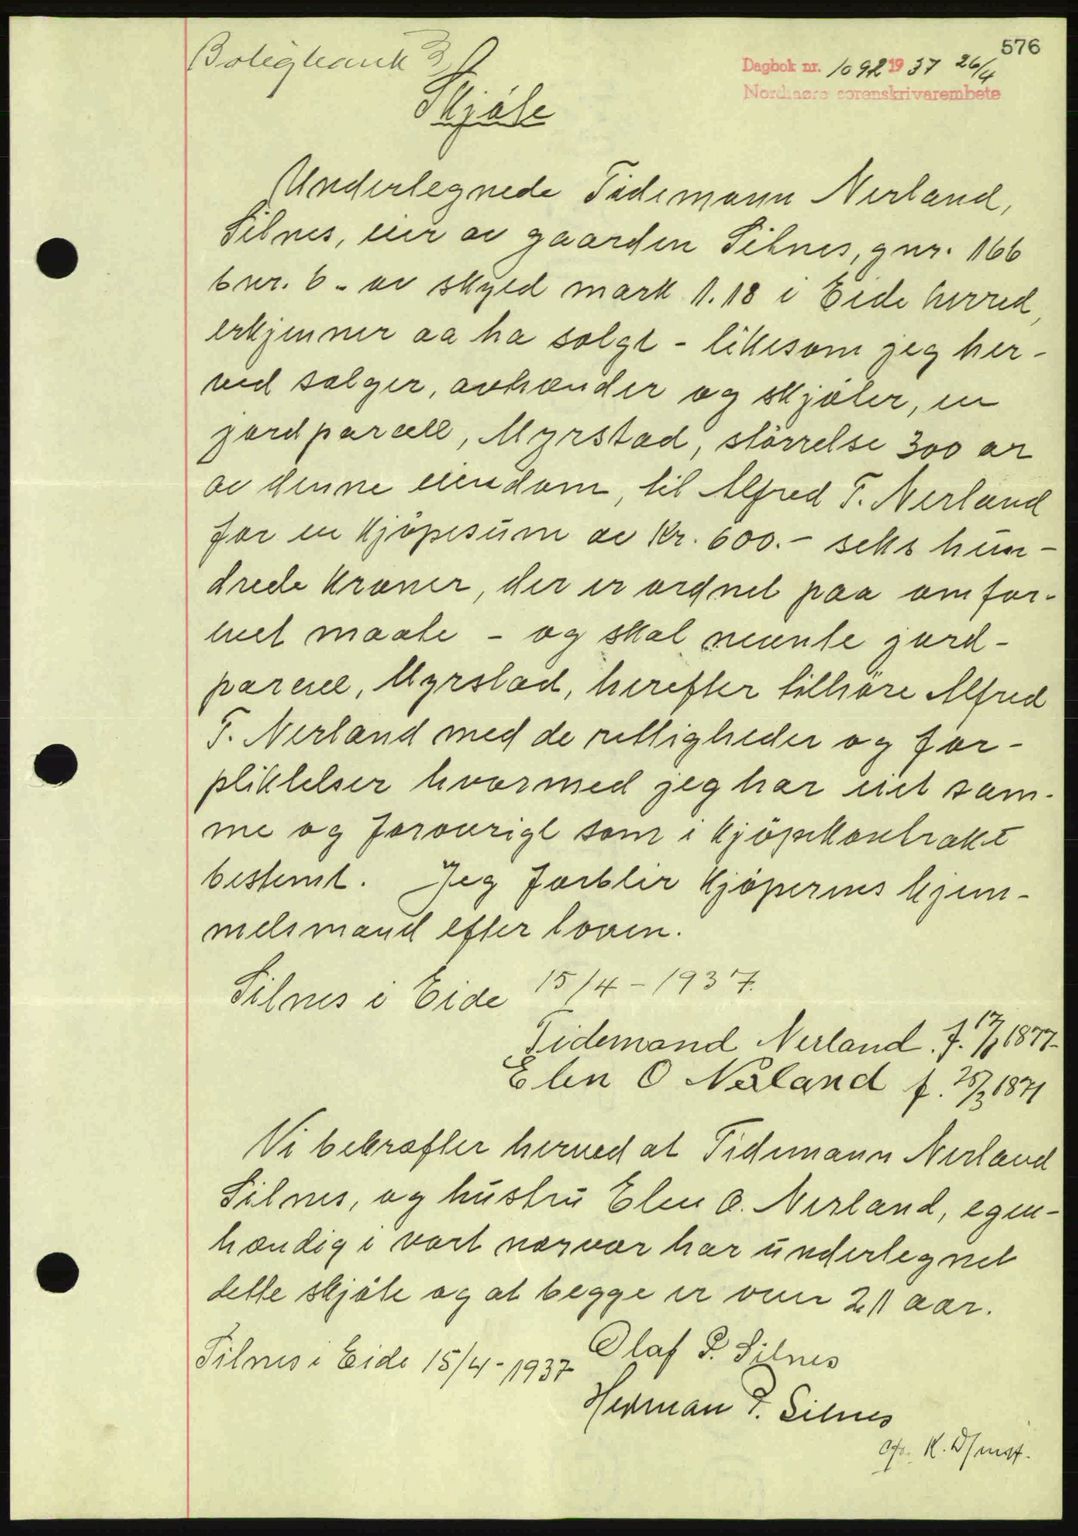 576
Boligbank
Dagbok nr. 1092 1937 26/4
Nordmøre sorenskrivarembete
Skjøte
Undertegnede Tidemann Nerland,
Silnes, eier av gaarden Silnes, gnr. 166
bnr. 6 - av skyld mark 1.18 i Eide herred,
erkjenner aa ha solgt - likesom jeg her-
ved sælger, avhænder og skjøter, en
jordparcell, Myrstad, størrelse 300 ar
av denne eiendom, til Alfred T. Nerland
for en kjøpesum av Kr. 600.- seks hun-
drede kroner, der er ordnet paa omfor-
enet maate - og skal nevnte jord-
parcell, Myrstad, herefter tilhøre Alfred
T. Nerland med de rettigheder og for-
pliktelser hvormed jeg har eiet sam-
me og forøvrigt som i kjøpekontrakt
bestemt. Jeg forblir kjøperens hjem-
melsmand efter loven.
Silnes i Eide 15/4 - 1937.
Tidemand Nerland. f. 17/1 1877-
Elen O Nerland f. 25/3 1871
Vi bekræfter herved at Tidemann Nerland
Silnes, og hustru Elen O. Nerland, egen-
hændig i vort nærvær har undertegnet
dette skjøte og at begge er over 21 aar.
Silnes i Eide 15/4 - 1937
Olaf P. Silnes
Herman P. Silnes